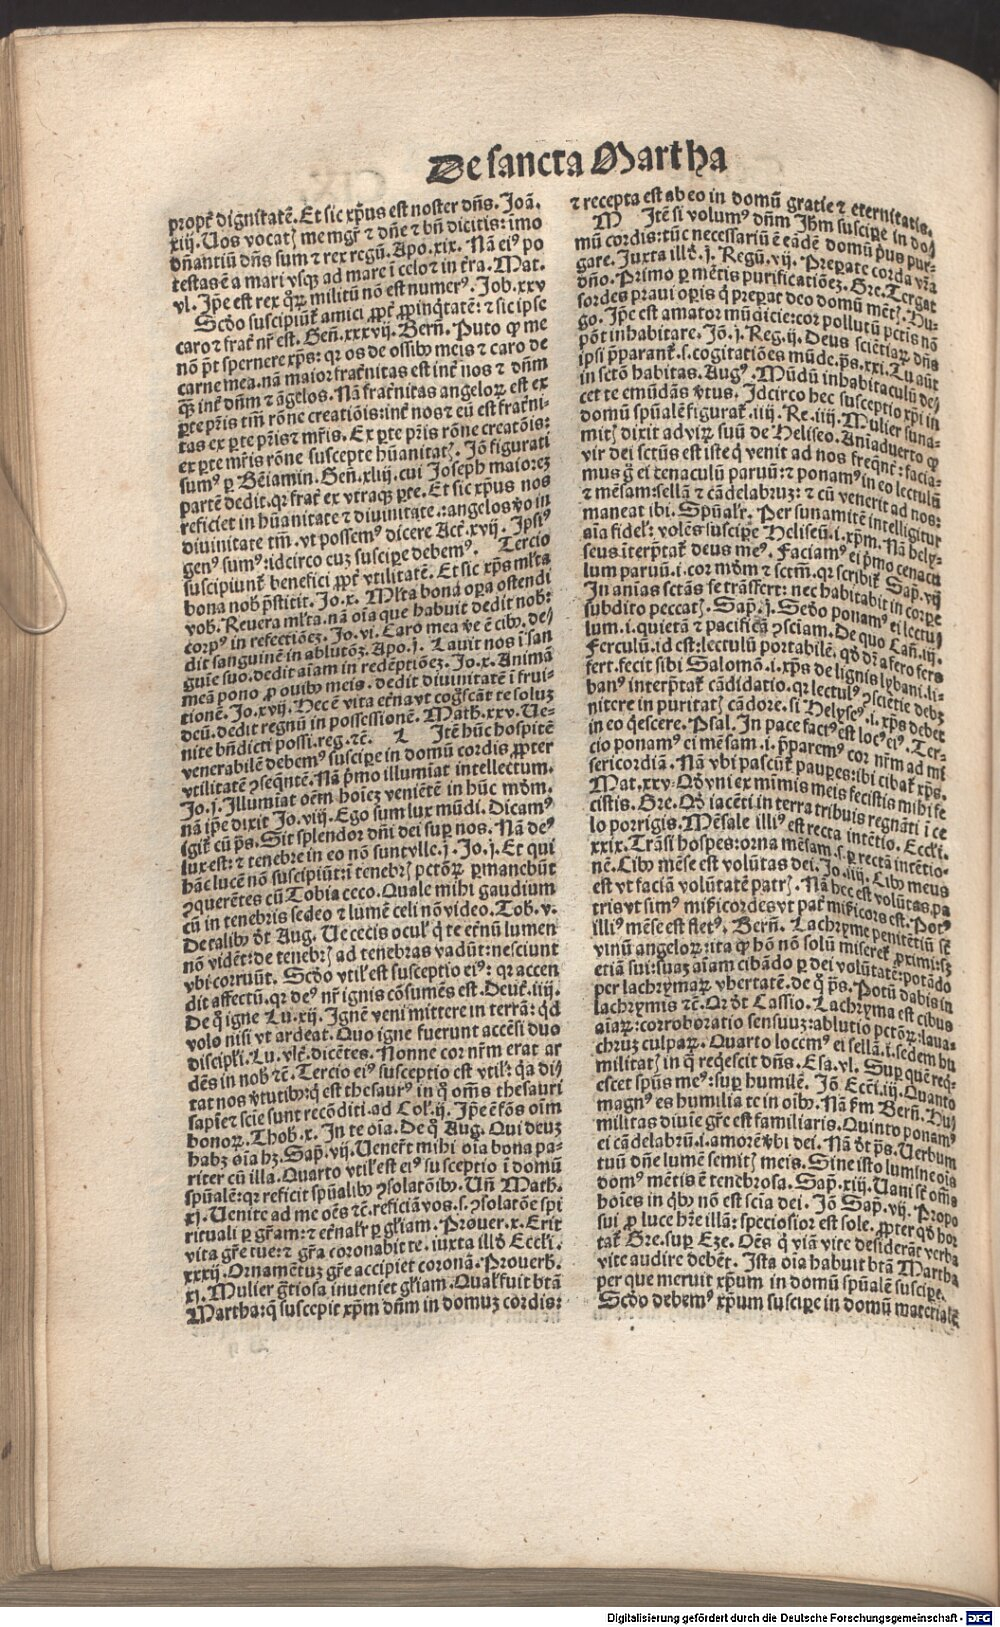 De sancta Martha
propt̃ dignitatẽ. Et sic xp̃us est noster dñs. Joã.
xiij. Uos vocatꝭ me mgr̃ ⁊ dñe ⁊ bñ dicitis: imo
dñantiũ dñs sum ⁊ rex regũ. Apo. xix. Nã ei⁹ po
testas ẽ a mari vsqꝫ ad mare ĩ celo ⁊ in t̃ra. Mat.
vl. Ip̃e est rex qͦꝝ militũ nõ est numer⁹. Job. xxv
Scd̓o suscipiũt̃ amici ꝓpt̃ ꝓpinq̃tatẽ: ⁊ sic ipse
caro ⁊ frat̃ nr̃ est. Geñ. xxxvij. Berñ. Puto ꝙ me
nõ p̃t spernere xp̃s: qr os de ossibꝰ meis ⁊ caro de
carne mea. nã maior frat̃nitas est int̃ nos ⁊ dñm
qꝫ̃ int̃ dñm ⁊ ãgelos. Nã frat̃nitas angeloꝝ est ex
ꝑte pris tm̃ rõne creatiõis: int̃ nos ⁊ eũ est frat̃ni-
tas ex ꝑte pris ⁊ mr̃is. Ex ꝑte pris rõne creatõis:
ex ꝑte mr̃is rõne suscepte hũanitatꝭ. Jõ figurati
sum⁹ ꝑ Bẽiamin. Geñ. xliij. cui Joseph maiorẽ
partẽ dedit. qr frat̃ ex vtraqꝫ ꝑte. Et sic xp̃us nos
reficiet in hũanitate ⁊ diuinitate: angelos ꝟo in
diuinitate tm̃. vt possem⁹ dicere Act̃. xvij. Ipsi⁹
gen⁹ sum⁹: idcirco euꝫ suscipe debem⁹. Tercio
suscipiunt̃ benefici ꝓpt̃ vtilitatẽ. Et sic xp̃us ml̃ta
bona nob̃ p̃stitit. Jo. x. Ml̃ta bona oꝑa ostendi
vob̃. Reuera ml̃ta. nã oĩa que habuit dedit nob̃:
corp⁹ in refectiõeꝫ. Jo. vi. Caro mea ꝟe ẽ cibꝰ. de-
dit sanguinẽ in ablutõeꝫ. Apo. j. Lauit nos ĩ san
guĩe suo. dedit aĩam in redẽptiõeꝫ. Jo. x. Animã
meã pono ꝓ ouibꝰ meis. dedit diuinitatẽ ĩ frui-
tionẽ. Jo. xvij. Hec ẽ vita et̃na vt cog̃scãt te soluꝫ
deũ. dedit regnũ in possessionẽ. Math̃. xxv. Ue-
nite bñdicti possi. reg. ⁊c̃. L Itẽ hũc hospitẽ
venerabilẽ debem⁹ suscipe in domũ cordis ꝓpter
vtilitatẽ ꝯseq̃ntẽ. Nã pͥmo illumĩat intellectum.
Jo. j. Illumĩat oẽm hoĩeꝫ veniẽtẽ in hũc mõm.
nã ip̃e dixit Jo. viij. Ego sum lux mũdi. Dicam⁹
igit̃ cũ p̃s. Sit splendor dñi dei suꝑ nos. Nã de⁹
lux est: ⁊ tenebre in eo nõ sunt vlle. j. Jo. j. Et qui
hãc lucẽ nõ suscipiũt: ĩ tenebrꝭ pctõꝝ ꝑmanebũt
ꝯquerẽtes cũ Tobia ceco. Quale mihi gaudium
cũ in tenebris sedeo ⁊ lumẽ celi nõ video. Tob. v.
De talibꝰ dt̃ Aug. Ue cecis ocul̃ q̃ te et̃nũ lumen
nõ vidẽt: de tenebrꝭ ad tenebras vadũt: nesciunt
vbi corruũt. Scd̓o vtil̃ est susceptio ei⁹: qr accen
dit affectũ. qr de⁹ nr̃ ignis cõsumẽs est. Deut̃. iiij.
De qͦ igne Lu. xij. Ignẽ veni mittere in terrã: qͥd
volo nisi vt ardeat. Quo igne fuerunt accẽsi duo
discipl̃i. Lu. vlt̃. dicẽtes. Nonne cor nr̃m erat ar
dẽs in nob̃ ⁊c̃. Tercio ei⁹ susceptio est vtil̃: qͥa di-
tat nos ꝟtutibꝰ: qͥ est thesaur⁹ in qͦ oms̃ thesauri
sapiẽt̃ ⁊ sciẽ sunt recõditi. ad Col̃. ij. Ip̃e ẽ fõs oĩm
bonoꝝ. Thob. x. In te oĩa. De qͦ Aug. Qui deuꝫ
habꝫ oĩa hꝫ. Sap̃. vij. Uener̃t mihi oĩa bona pa-
riter cũ illa. Quarto vtil̃ est ei⁹ susceptio ĩ domũ
spũalẽ: qr reficit spũalibꝰ ꝯsolatõibꝰ. Uñ Math̃.
xj. Uenite ad me oẽs ⁊c̃. reficiã vos. s. ꝯsolatõe spi
rituali ꝑ gr̃am: ⁊ et̃nal̃r ꝑ gl̃iam. Prouer. x. Erit
vita gr̃e tue: ⁊ gr̃a coronabit te. iuxta illd̓ Eccl̃i.
xxxij. Ornamẽtuꝫ gr̃e accipiet coronã. Prouerb̃.
xj. Mulier gr̃tiosa inueniet gl̃iam. Qual̃ fuit btã
Martha: q̃ suscepit xp̃m dñm in domuꝫ cordis:
⁊ recepta est ab eo in domũ gratie ⁊ eternitatis.
M Itẽ si volum⁹ dñm Jh̃m suscipe in do-
mũ cordis: tũc necessariũ ẽ eãdẽ domũ pͥus pur-
gare. Juxta illd̓. j. Regũ. vij. Preparate corda vr̃a
dño. Primo ꝑ mẽtis purificatiõeꝫ. Gre. Tergat
sordes praui oꝑis qͥ preparat deo domũ mẽtꝭ. Hu-
go. Ip̃e est amator mũdicie: cor pollutũ pctis nõ
põt inhabitare. Jõ. j. Reg. ij. Deus sciẽtiaꝝ dñs
ipsi p̃parant̃. s. cogitatiões mũde. p̃s. xxi. Tu aũt
in sctõ habitas. Aug⁹. Mũdũ inhabitaculũ de-
cet te emũdãs ꝟtus. Idcirco hec susceptio xp̃i in
domũ spũalẽ figurat̃. iiij. Re. iiij. Mulier suna-
mitꝭ dixit ad viꝝ suũ de Heliseo. Aniaduerto ꝙ
vir dei sctũs est iste qͥ venit ad nos freqñt̃: facia-
mus g̃ ei cenaculũ paruũ: ⁊ ponam⁹ in eo lectulũ
⁊ mẽsam: sellã ⁊ cãdelabruꝫ: ⁊ cũ venerit ad nos:
maneat ibi. Spũal̃r. Per sunamitẽ intelligitur
aĩa fidel̃: volẽs suscipe Heliseũ. i. xp̃m. Nã hely-
seus ĩterp̃tat̃ deus me⁹. Faciam⁹ ei pͥmo cenacu
lum paruũ. i. cor mõm ⁊ sctm̃. qr scribit̃ Sap̃. vij
In anĩas sctãs se trãsfert: nec habitabit in corpe
subdito peccatꝭ. Sap̃. j. Scd̓o ponam⁹ ei lectu-
lum. i. quietã ⁊ pacificã ꝯsciam. De quo Cañ. iij.
Ferculũ. id est: lectulũ portabilẽ. qd̓ dr̃ a fero fers
fert. fecit sibi Salomõ. i. xp̃s de lignis lybani. li-
ban⁹ interp̃tat̃ cãdidatio. qr lectul⁹ ꝯsciẽtie debꝫ
nitere in puritatꝭ cãdore. si Helyse⁹. i. xp̃s debet
in eo qͥescere. Psal. In pace fact⁹ est loc⁹ ei⁹. Ter-
cio ponam⁹ ei mẽsam. i. p̃parem⁹ cor nr̃m ad mi
sericordiã. Nã vbi pascunt̃ pauperes: ibi cibat̃ xp̃s.
Mat. xxv. Qd̓ vni ex mĩmis meis fecistis mihi fe
cistis. Gre. Qd̓ iacẽti in terra tribuis regnãti ĩ ce
lo porrigis. Mẽsale illi⁹ est recta intẽtio. Eccl̃i.
xxix. Trãsi hospes: orna mẽsam. s. ꝑ rectã intẽtio-
nẽ. Cibꝰ mẽse est volũtas dei. Jo. iiij. Cibꝰ meus
est vt faciã volũtatẽ patrꝭ. Nã hec est volũtas pa
tris vt sim⁹ mĩsicordes vt pat̃ mĩsicors est. Pot⁹
illi⁹ mẽse est flet⁹. Berñ. Lachryme penitẽtiũ sũt
vinũ angeloꝝ: ita ꝙ hõ nõ solũ miseret̃ ꝓximi: sꝫ
etiã sui: suaꝫ aĩam cibãdo ꝑ dei volũtatẽ: potãdo
per lachrymaꝝ vbertatẽ. de qͦ p̃s. Potũ dabis in
lachrymis ⁊c̃. Qr dt̃ Cassio. Lachryma est cibus
aĩaꝝ: corroboratio sensuuꝫ: ablutio pctõꝝ: laua-
chruꝫ culpaꝝ. Quarto locem⁹ ei sellã. i. sedem hu
militatꝭ in qͣ reqͥescit dñs. Esa. vl. Suꝑ quẽ reqͥ-
escet spũs me⁹: suꝑ humilẽ. Jõ Eccl̃i. iij. Quanto
magn⁹ es humilia te in oĩbꝰ. Nã fm̃ Berñ. Hu-
militas diuie gr̃e est familiaris. Quinto ponam⁹
ei cãdelabrũ. i. amorẽ ꝟbi dei. Nã dt̃ p̃s. Uerbum
tuũ dñe lumẽ semitꝭ meis. Sine isto lumine oĩs
dom⁹ mẽtis ẽ tenebrosa. Sap̃. xiij. Uani sũt oẽs
hoĩes in qͥbꝰ nõ est scĩa dei. Jõ Sap̃. vij. Propo
sui ꝓ luce hr̃e illã: speciosior est sole. ꝓpter qd̓ hor
tat̃ Gre. suꝑ Eze. Oẽs qͥ viã vite desiderãt verba
vite audire debẽt. Ista oĩa habuit btã Martha
per que meruit xp̃um in domũ spũalẽ suscipe.
Scd̓o debem⁹ xp̃um suscipe in domũ materialẽ
Digitalisierung gefördert durch die Deutsche Forschungsgemeinschaft - DFG